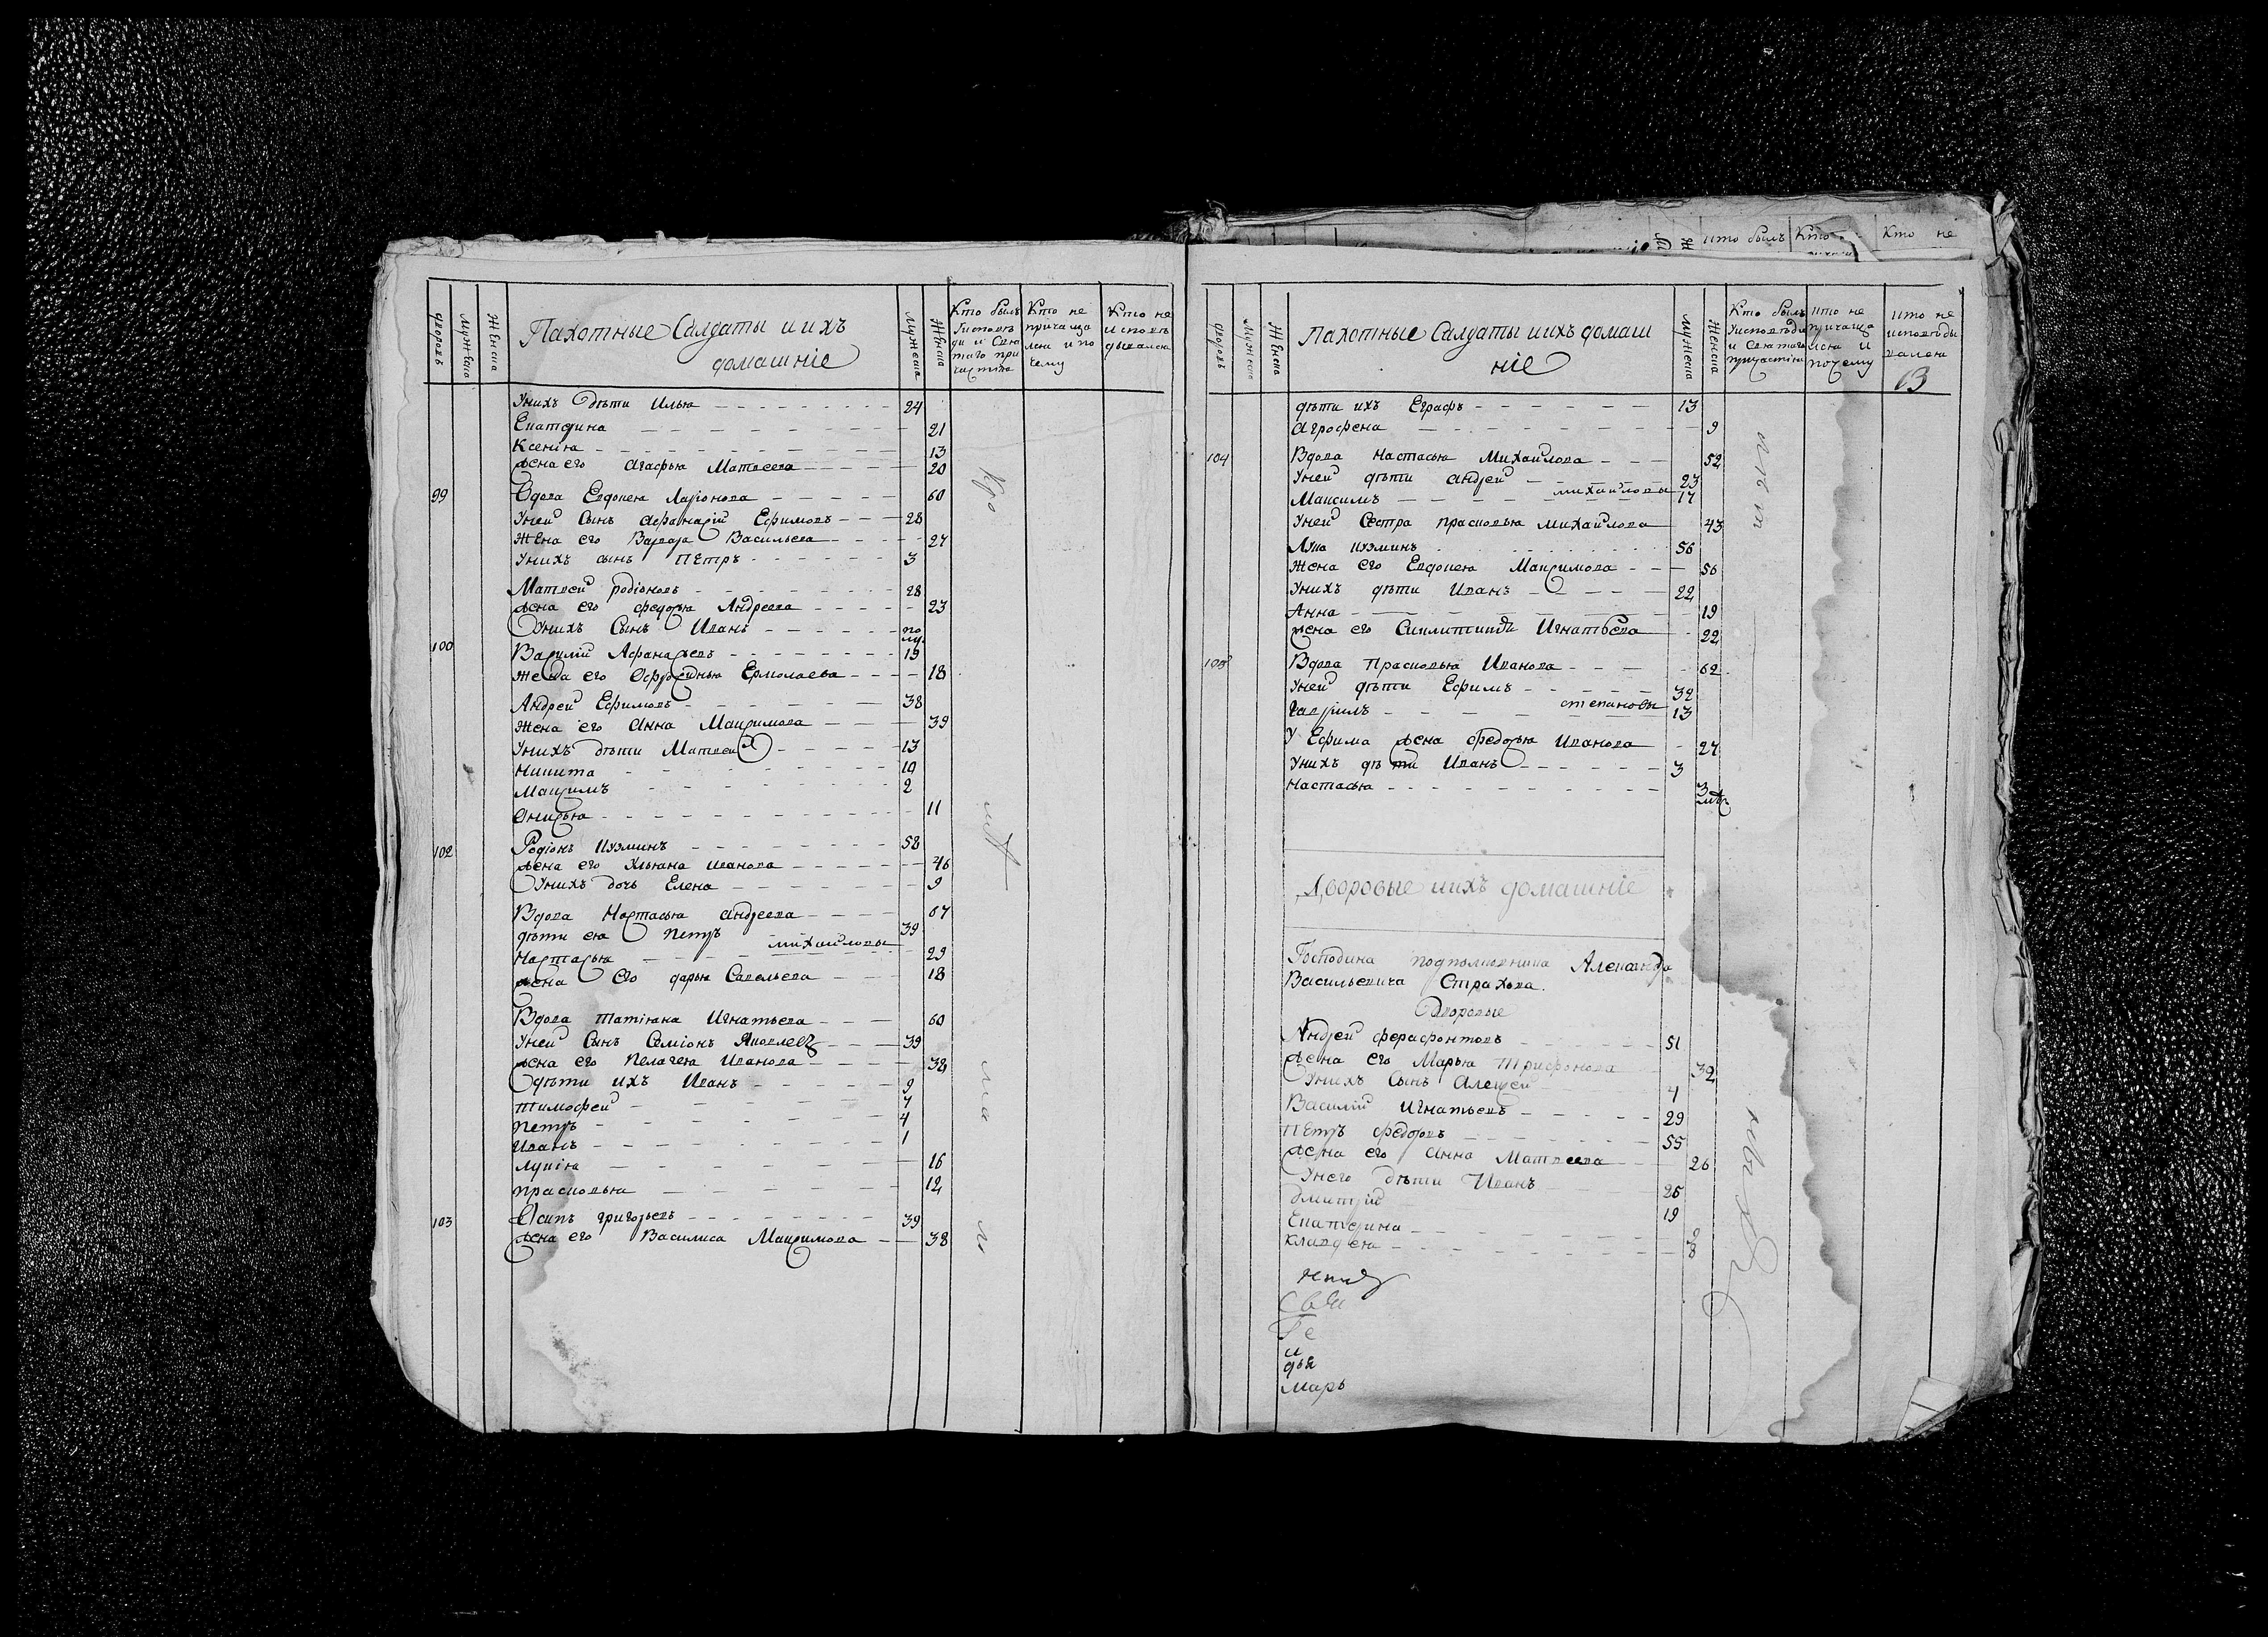 дворовъ
Мужеска
Женска
Пахотные Салдаты и ихъ
домашніе
мужеска
Женска
Кто былъ
Уисповѣ
ди и Свя
таго при
частія
Кто не
причаща
лся и по
чему
Кто не
исповѣ
дывался
Унихъ дѣти Илья 24
Екатерина 21
Ксенія 13
жена его Агафья Матвеева 20
99 Вдова Евдокея Ларіонова 60
Уней Сынъ Афанасій Ефимовъ 28
Жена его Варвара Васильева 27
Унихъ сынъ Петръ 3
Матвей родіоновъ 28
жена его федосья Андреева 23
Унихъ Сынъ Иванъ по
лу.
100 Василий Афанасьевъ 19
Жена его Ефросинья Ермолаева 18
Андрей Ефимовъ 38
Жена его Анна Максимова 39
Унихъ дѣти Матвей 13
Никита 10
Максимъ 2
Анисья 11
102 Родіонъ Кузминъ 58
жена его Ульяна иванова 46
Унихъ дочь Елена 9
Вдова Настасья андреева 67
дѣти ея Петръ 39
михайловы
Настасья 29
жена его дарья Савельева 18
Вдова татіяна Игнатьева 60
Уней Сынъ Семіонъ Яковлевъ 39
жена его Пелагея Иванова 38
дѣти ихъ Иванъ 9
тимофей 7
Петръ 4
Иванъ 1
Лукія 16
прасковья 12
103 Осипъ григорьевъ 39
жена его Василиса Максимова 38
дворовъ
Мужеска
Женска
Пахотные Салдаты и ихъ домаш
ніе
мужеска
Женска
Кто былъ
Уисповѣди
и Святаго
причастія
кто не
причаща
лся и
почему
кто не
исповѣды
вался
13
дѣти ихъ Еграфъ 13
Агрофена 9
104 Вдова Настасья Михайлова 52
Уней дѣти андрей 23
михайловы
Максимъ 17
Уней Сестра прасковья михайлова 43
Лука кузминъ 56
Жена его Евдокея Максимова 56
Унихъ дѣти Иванъ 22
Анна 19
жена его Синлитикия Игнатьева 22
105 Вдова Прасковья Иванова 62
Уней дѣти Ефимъ 32
степановы
Гаврилъ 13
У Ефима жена федосья Иванова 27
Унихъ дѣти Иванъ 3
Настасья 3
мѣ
Дворовые иихъ домашніе
Господина подполковника Александра
Васильевича Страхова.
Дворовые
Андрей ферафонтовъ 51
жена его Марья трифонова 32
Унихъ Сынъ Алексей 4
Василій Игнатьевъ 29
Петръ федоровъ 55
жена его анна Матвеева 26
Унего дѣти Иванъ 25
дмитрій 19
Екатерина 9
клавдея 8
Ге
и
дья
марь